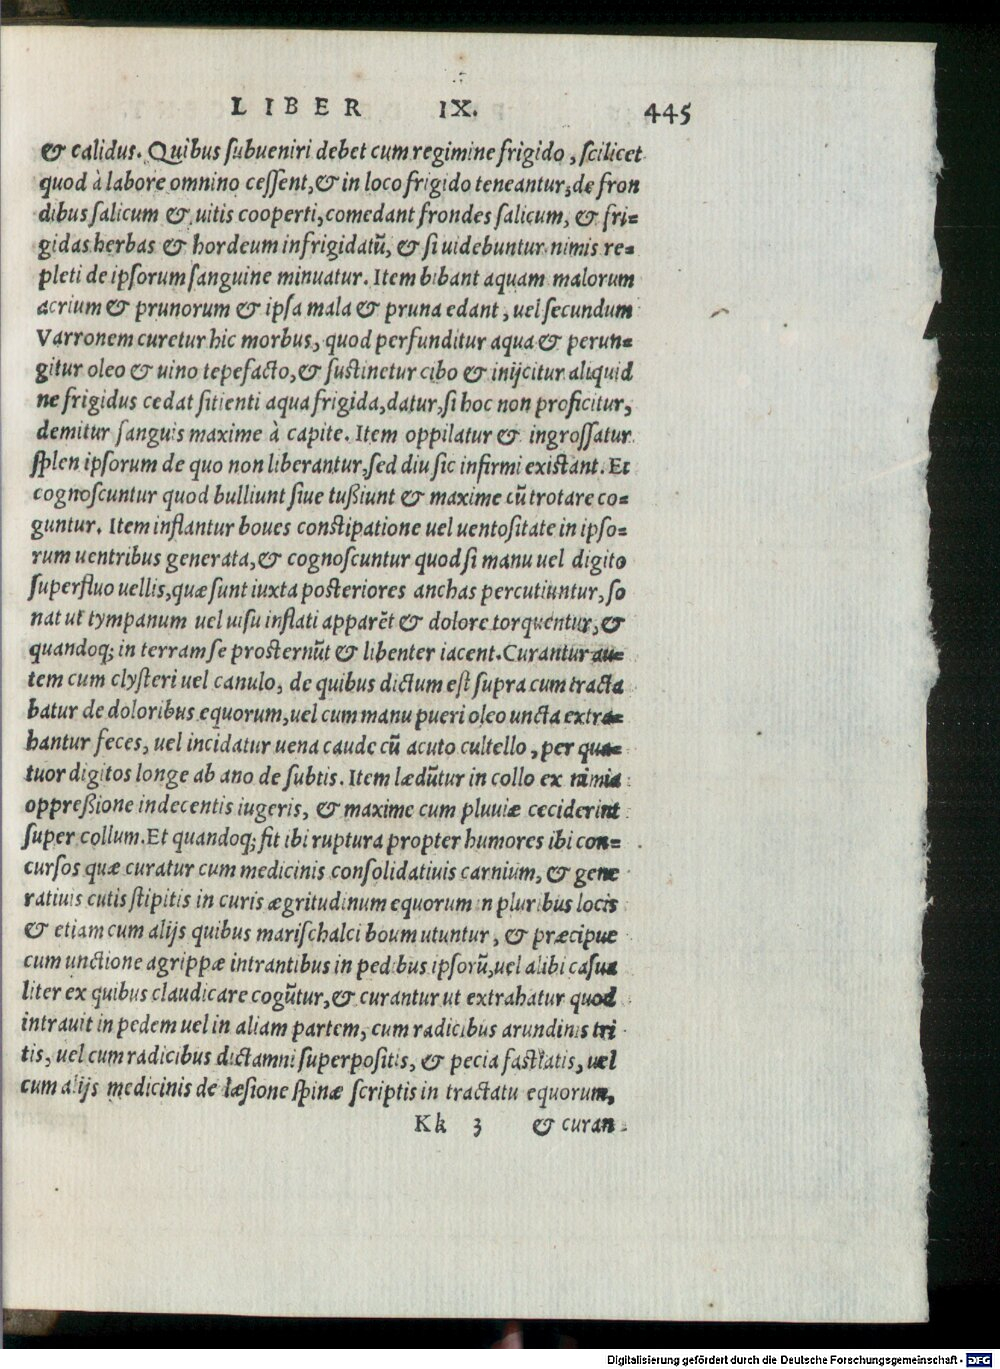 LIBER IX. 445
& calidus. Quibus ſubueniri debet cum regimine frigido, ſcilicet
quod à labore omnino ceſſent, & in loco frigido teneantur, de fron
dibus ſalicum & uitis cooperti, comedant frondes ſalicum, & fri=
gidas herbas & hordeum infrigidatũ, & ſi uidebuntur nimis re=
pleti de ipſorum ſanguine minuatur. Item bibant aquam malorum
acrium & prunorum & ipſa mala & pruna edant, uel ſecundum
Varronem curetur hic morbus, quod perfunditur aqua & perun=
gitur oleo & uino tepefacto, & ſuſtinetur cibo & inijcitur aliquid
ne frigidus cedat ſitienti aqua frigida, datur, ſi hoc non proficitur,
demitur ſanguis maxime à capite. Item oppilatur & ingroſſatur
ſplen ipſorum de quo non liberantur, ſed diu ſic infirmi exiſtant. Et
cognoſcuntur quod bulliunt ſiue tußiunt & maxime cũ trotare co=
guntur. Item inflantur boues conſtipatione uel uentoſitate in ipſo=
rum uentribus generata, & cognoſcuntur quod ſi manu uel digito
ſuperfluo uellis, quæ ſunt iuxta poſteriores anchas percutiuntur, ſo
nat ut tympanum uel uiſu inflati apparẽt & dolore torquentur, &
quandoq; in terram ſe proſternũt & libenter iacent. Curantur au=
tem cum clyſteri uel canulo, de quibus dictum eſt ſupra cum tracta
batur de doloribus equorum, uel cum manu pueri oleo uncta extra=
hantur feces, uel incidatur uena caude cũ acuto cultello, per qua=
tuor digitos longe ab ano de ſubtis. Item lædũtur in collo ex nimia
oppreßione indecentis iugeris, & maxime cum pluuiæ ceciderint
ſuper collum. Et quandoq; fit ibi ruptura propter humores ibi con=
curſos quæ curatur cum medicinis conſolidatiuis carnium, & gene
ratiuis cutis ſtipitis in curis ægritudinum equorum in pluribus locis
& etiam cum alijs quibus mariſchalci boum utuntur, & præcipue
cum unctione agrippæ intrantibus in pedibus ipſorũ, uel alibi caſua
liter ex quibus claudicare cogũtur, & curantur ut extrahatur quod
intrauit in pedem uel in aliam partem, cum radicibus arundinis tri
tis, uel cum radicibus dictamni ſuperpoſitis, & pecia faſtlatis, uel
cum alijs medicinis de læſione ſpinæ ſcriptis in tractatu equorum,
Kk 3 & curan
Digitalisierung gefördert durch die Deutsche Forschungsgemeinschaft - DFG